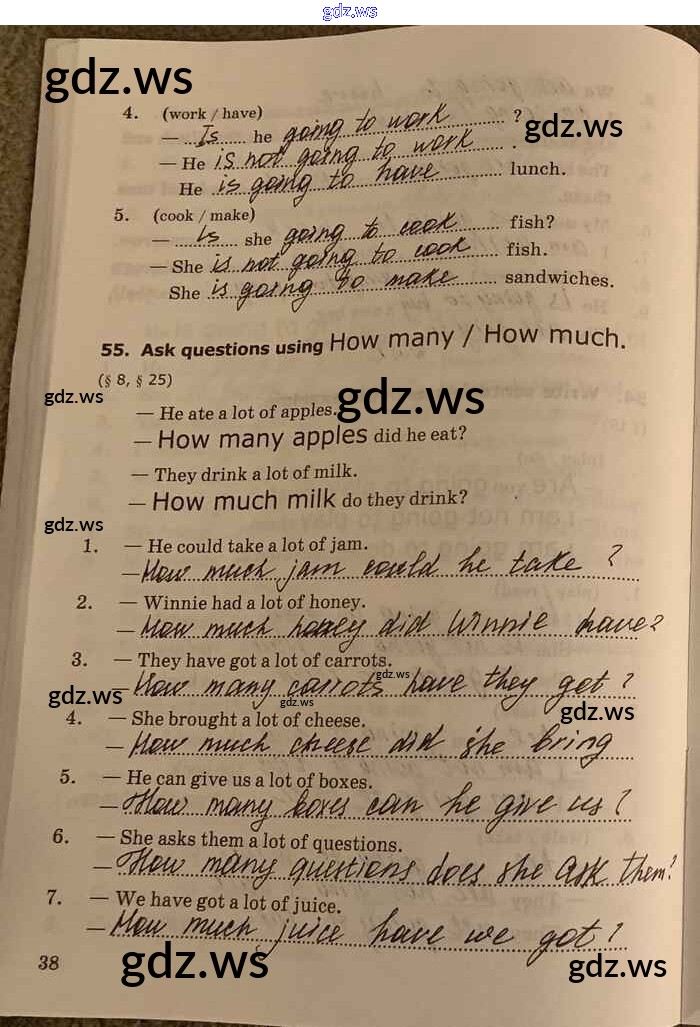 gdz.ws
gdz.ws
4. (work / have)
— Is he going to work ?
gdz.ws
— He is not going to work .
He is going to have lunch.
5. (cook / make)
— Is she going to cook fish?
— She is not going to cook fish.
She is going to make sandwiches.
55. Ask questions using How many / How much.
(§ 8, § 25)
gdz.ws
gdz.ws
— He ate a lot of apples.
— How many apples did he eat?
— They drink a lot of milk.
— How much milk do they drink?
gdz.ws
1. — He could take a lot of jam.
— How much jam could he take ?
2. — Winnie had a lot of honey.
— How much honey did Winnie have?
3. — They have got a lot of carrots.
gdz.ws
— How many carrots have they got ?
gdz.ws
gdz.ws
gdz.ws
4. — She brought a lot of cheese.
— How much cheese did she bring
5. — He can give us a lot of boxes.
— How many boxes can he give us ?
6. — She asks them a lot of questions.
— How many questions does she ask them?
7. — We have got a lot of juice.
— How much juice have we got ?
38
gdz.ws
gdz.ws